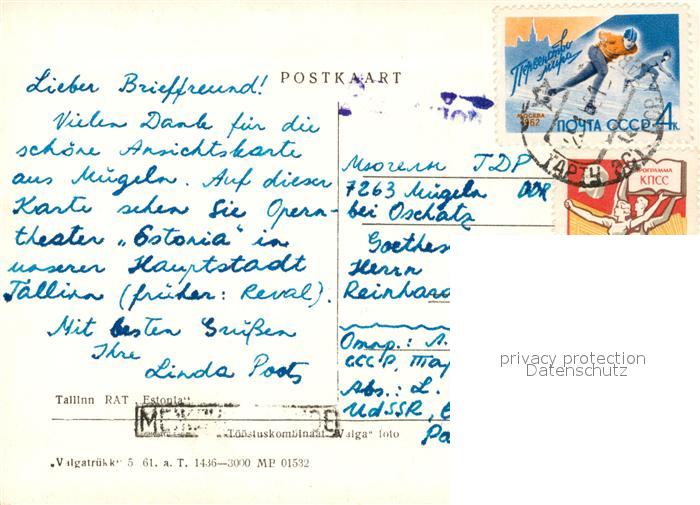 POSTKAART
Lieber Brieffreund!
Vielen Dank für die
schöne Ansichtskarte
aus Mügeln. Auf dieser
Karte sehen Sie Opern-
theater „Estonia" in
unserer Hauptstadt
Tallinn (früher: Reval).
Mit besten Grüßen
Ihre
Linda Poots
Tallinn RAT „Estonia"
Tööstuskombinaat „Valga" foto
„Valgatrükk" 5 61. a. T. 1436—3000 MP 01532
Первенство
мира
МОСКВА
1962
ПОЧТА СССР 4к.
ТАРТУ
ПРОГРАММА
КПСС
Мюгельн ГДР
7263 Mügeln DDR
bei Oschatz
Goethes
Herrn
Reinhard
Отпр.: Л.
СССР, Тар
Abs.: L.
UdSSR,
Po
privacy protection
Datenschutz